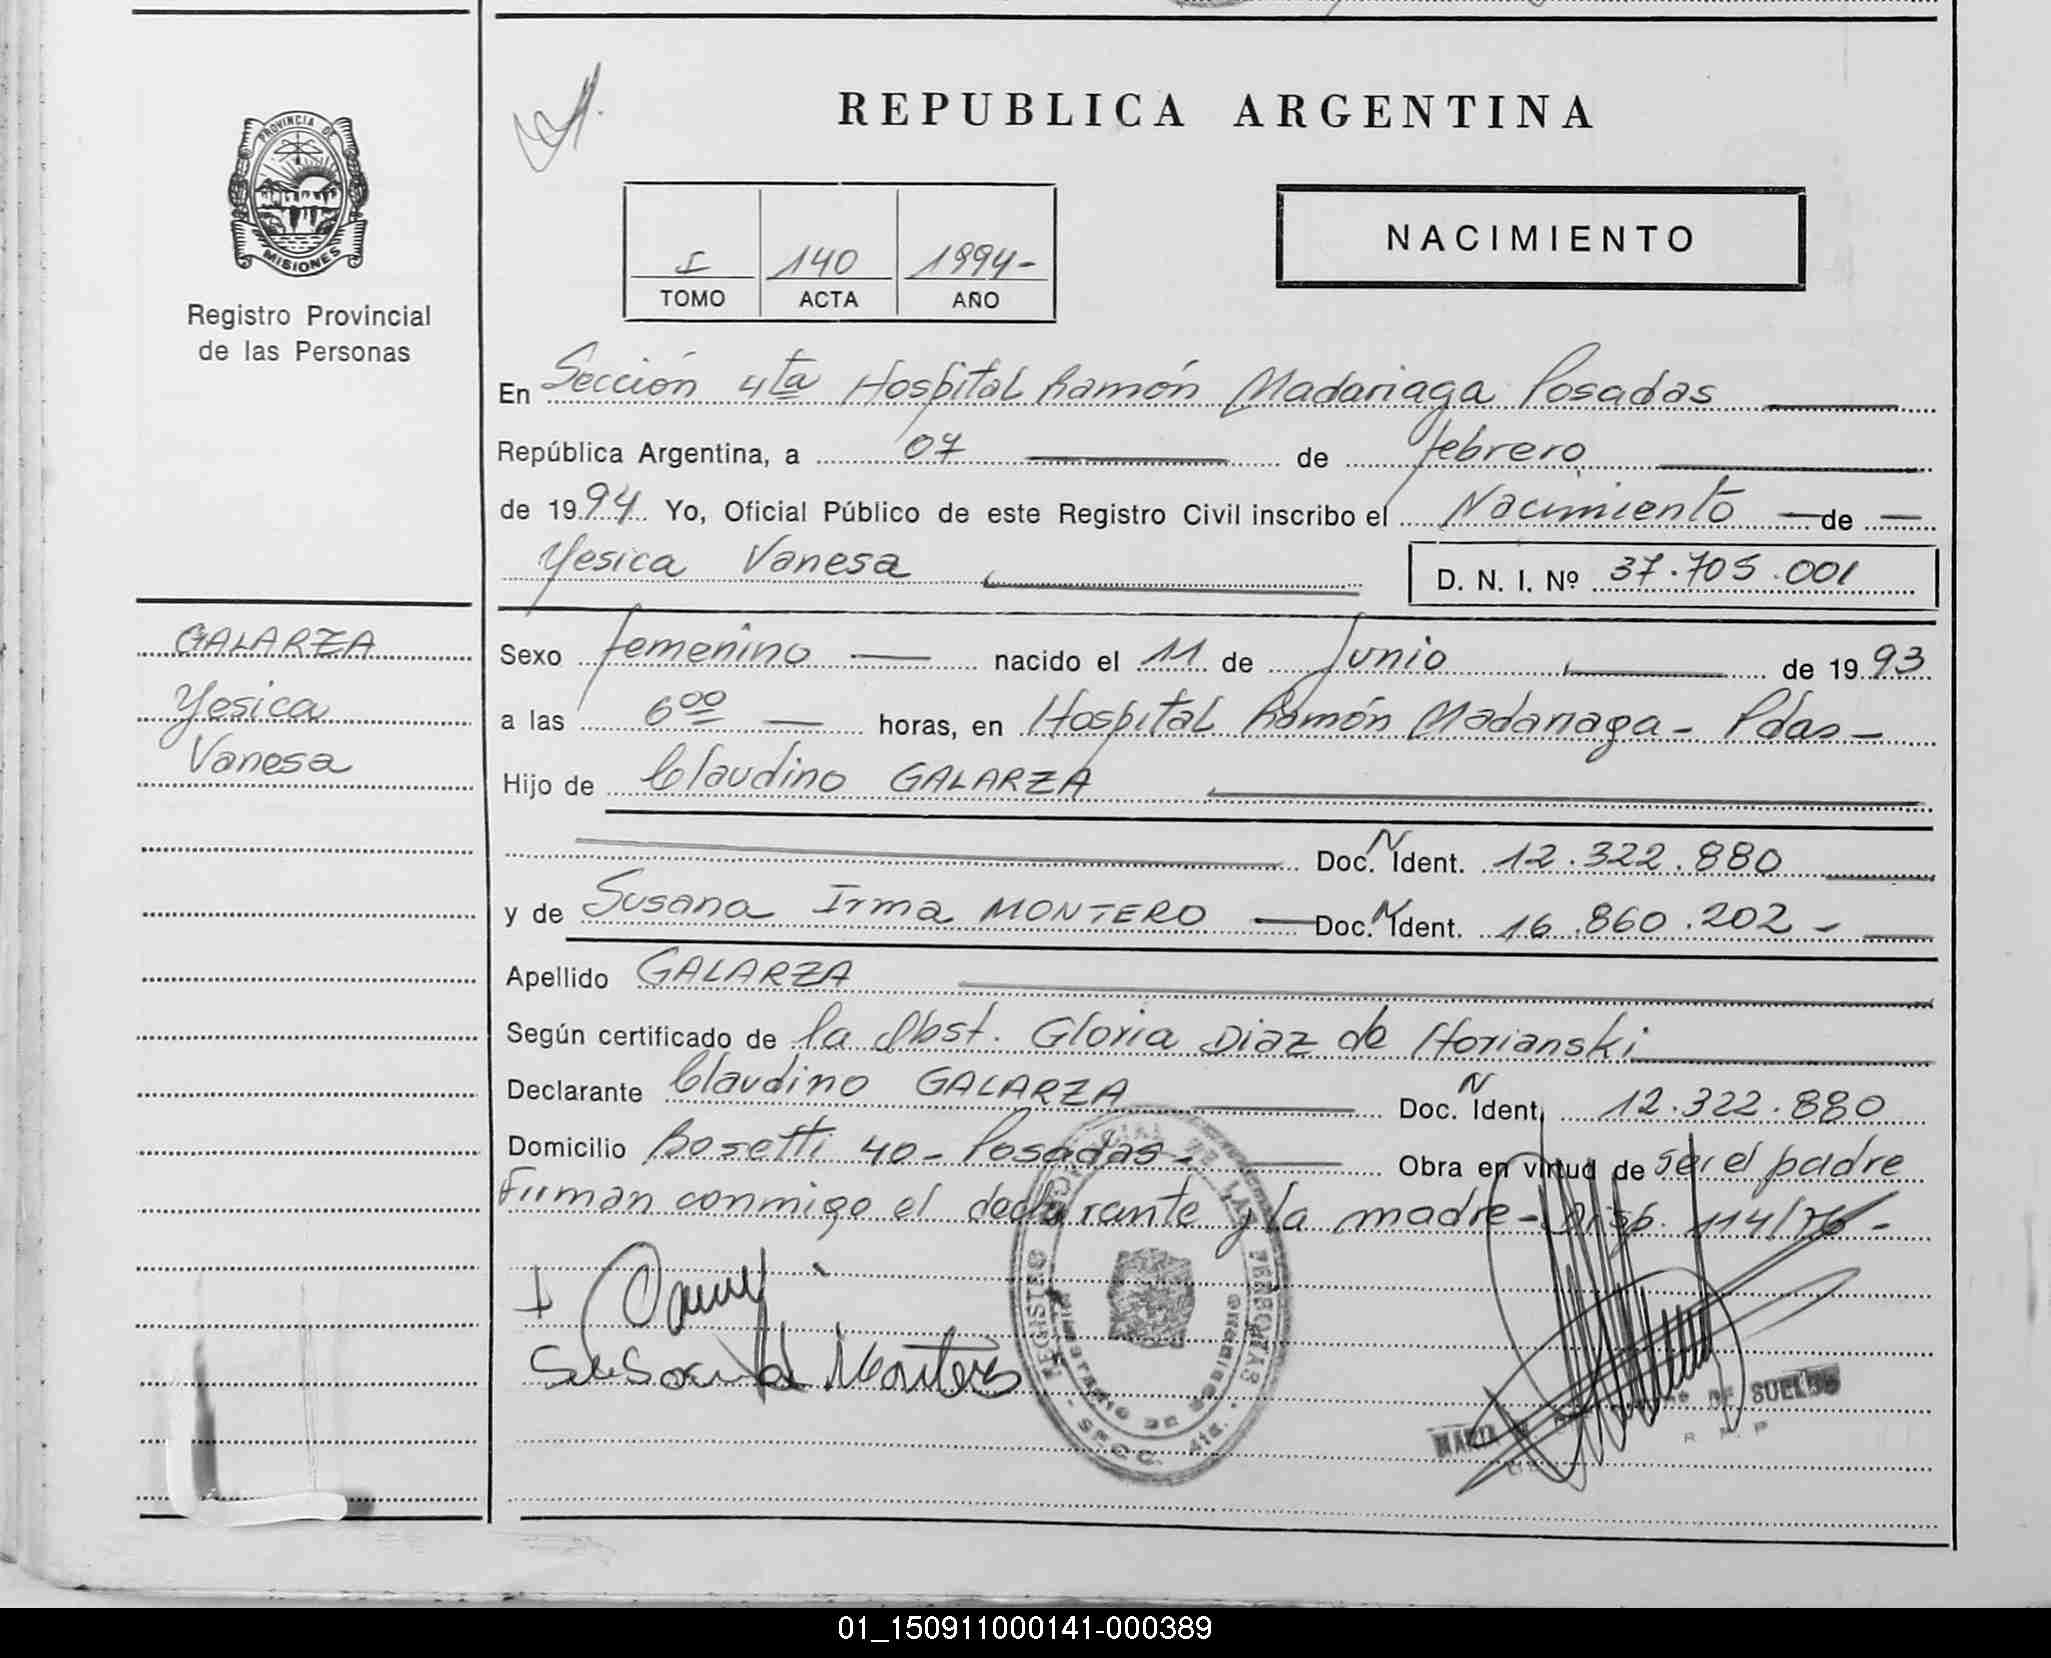 PROVINCIA DE
MISIONES
Registro Provincial
de las Personas
GALARZA
Yesica
Vanesa
REPUBLICA ARGENTINA
I 140 1994-
TOMO ACTA AÑO
NACIMIENTO
En Sección 4ta Hospital Ramón Madariaga Posadas
República Argentina, a 07 de febrero
de 1994 Yo, Oficial Público de este Registro Civil inscribo el Nacimiento de
Yesica Vanesa D. N. I. Nº 37.705.001
Sexo femenino nacido el 11 de Junio de 1993
a las 6 00 horas, en Hospital Ramón Madariaga - Pdas -
Hijo de Claudino GALARZA
Doc. N Ident. 12.322.880
y de Susana Irma MONTERO Doc. N Ident. 16.860.202 -
Apellido GALARZA
Según certificado de la Obst. Gloria Diaz de Horianski
Declarante Claudino GALARZA Doc. N Ident. 12.322.880
Domicilio Bosetti 40 - Posadas - Obra en virtud de ser el padre
Firman conmigo el declarante y la madre - Disp. 114/76 -
Susana Montero
REGISTRO PROVINCIAL DE LAS PERSONAS
MINISTERIO DE GOBIERNO
MARIA DE SUELDO
01_150911000141-000389